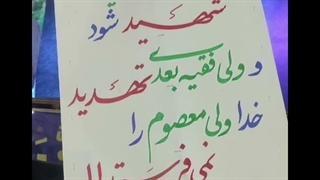 شهید شود
و ولی فقیه بعدی تهدید
خدا ولی معصوم را
نمی